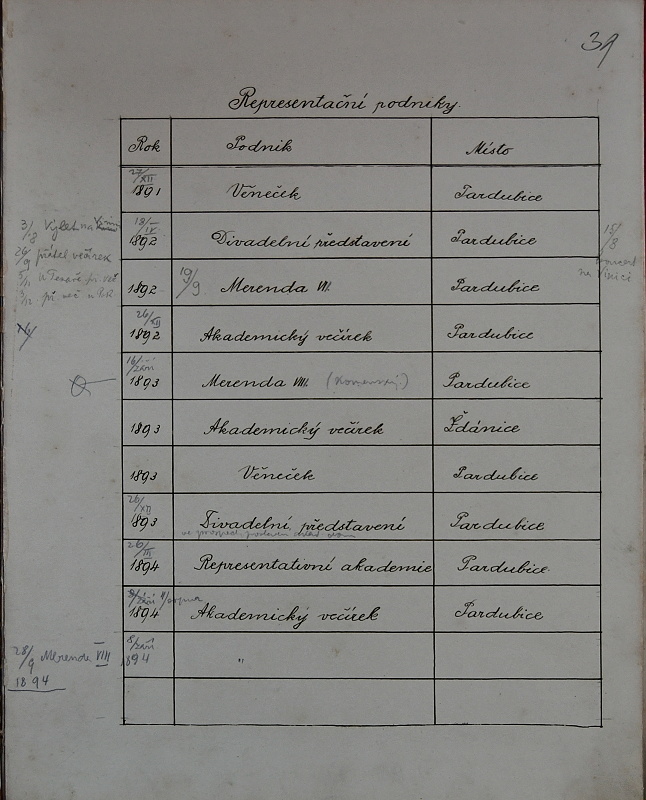 39
Representační podniky.
Rok Podnik Místo
27/XII 1891 Věneček Pardubice
18/IX 1892 Divadelní představení Pardubice
1892 19/9 Merenda VII. Pardubice
26/XII 1892 Akademický večírek Pardubice
16/září 1893 Merenda VIII. Pardubice
1893 Akademický večírek Ždánice
1893 Věneček Pardubice
26/XII 1893 Divadelní představení Pardubice
ve prospěch
26/III 1894 Representativní akademie Pardubice
1894 Akademický večírek Pardubice
8/září 894 "
3/8 Výlet na
26/9 přátel večírek
15/8
koncert
na Vinici
28/9 Merenda VIII
1894